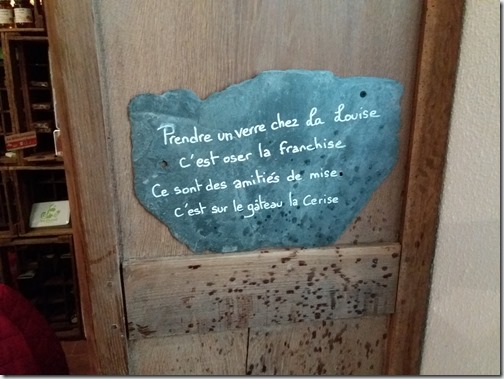 Prendre un verre chez La Louise
C'est oser la franchise
Ce sont des amitiés de mise
C'est sur le gâteau la Cerise